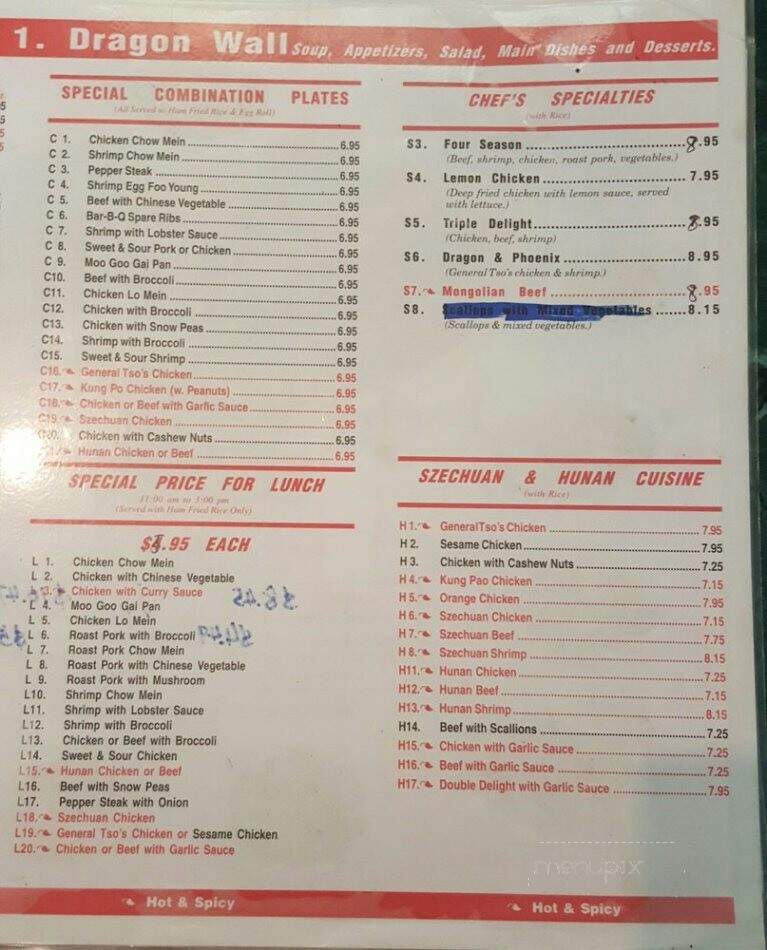 1. Dragon Wall Soup, Appetizers, Salad, Main Dishes and Desserts.
SPECIAL COMBINATION PLATES
(All Served w/ Ham Fried Rice & Egg Roll)
C 1. Chicken Chow Mein 6.95
C 2. Shrimp Chow Mein 6.95
C 3. Pepper Steak 6.95
C 4. Shrimp Egg Foo Young 6.95
C 5. Beef with Chinese Vegetable 6.95
C 6. Bar-B-Q Spare Ribs 6.95
C 7. Shrimp with Lobster Sauce 6.95
C 8. Sweet & Sour Pork or Chicken 6.95
C 9. Moo Goo Gai Pan 6.95
C10. Beef with Broccoli 6.95
C11. Chicken Lo Mein 6.95
C12. Chicken with Broccoli 6.95
C13. Chicken with Snow Peas 6.95
C14. Shrimp with Broccoli 6.95
C15. Sweet & Sour Shrimp 6.95
C16. General Tso's Chicken 6.95
C17. Kung Po Chicken (w. Peanuts) 6.95
C18. Chicken or Beef with Garlic Sauce 6.95
C19. Szechuan Chicken 6.95
C20. Chicken with Cashew Nuts 6.95
Hunan Chicken or Beef 6.95
SPECIAL PRICE FOR LUNCH
11:00 am to 3:00 pm
(Served with Ham Fried Rice Only)
.95 EACH
L 1. Chicken Chow Mein
L 2. Chicken with Chinese Vegetable
L 3. Chicken with Curry Sauce
L 4. Moo Goo Gai Pan
L 5. Chicken Lo Mein
L 6. Roast Pork with Broccoli
L 7. Roast Pork Chow Mein
L 8. Roast Pork with Chinese Vegetable
L 9. Roast Pork with Mushroom
L10. Shrimp Chow Mein
L11. Shrimp with Lobster Sauce
L12. Shrimp with Broccoli
L13. Chicken or Beef with Broccoli
L14. Sweet & Sour Chicken
L15. Hunan Chicken or Beef
L16. Beef with Snow Peas
L17. Pepper Steak with Onion
L18. Szechuan Chicken
L19. General Tso's Chicken or Sesame Chicken
L20. Chicken or Beef with Garlic Sauce
Hot & Spicy
CHEF'S SPECIALTIES
(with Rice)
S3. Four Season 8.95
(Beef, shrimp, chicken, roast pork, vegetables.)
S4. Lemon Chicken 7.95
(Deep fried chicken with lemon sauce, served
with lettuce.)
S5. Triple Delight 8.95
(Chicken, beef, shrimp)
S6. Dragon & Phoenix 8.95
(General Tso's chicken & shrimp.)
S7. Mongolian Beef 8.95
S8. Scallops with Mixed Vegetables 8.15
(Scallops & mixed vegetables.)
SZECHUAN & HUNAN CUISINE
(with Rice)
H 1. General Tso's Chicken 7.95
H 2. Sesame Chicken 7.95
H 3. Chicken with Cashew Nuts 7.25
H 4. Kung Pao Chicken 7.15
H 5. Orange Chicken 7.95
H 6. Szechuan Chicken 7.15
H 7. Szechuan Beef 7.75
H 8. Szechuan Shrimp 8.15
H11. Hunan Chicken 7.25
H12. Hunan Beef 7.15
H13. Hunan Shrimp 8.15
H14. Beef with Scallions 7.25
H15. Chicken with Garlic Sauce 7.25
H16. Beef with Garlic Sauce 7.25
H17. Double Delight with Garlic Sauce 7.95
menupix
Hot & Spicy